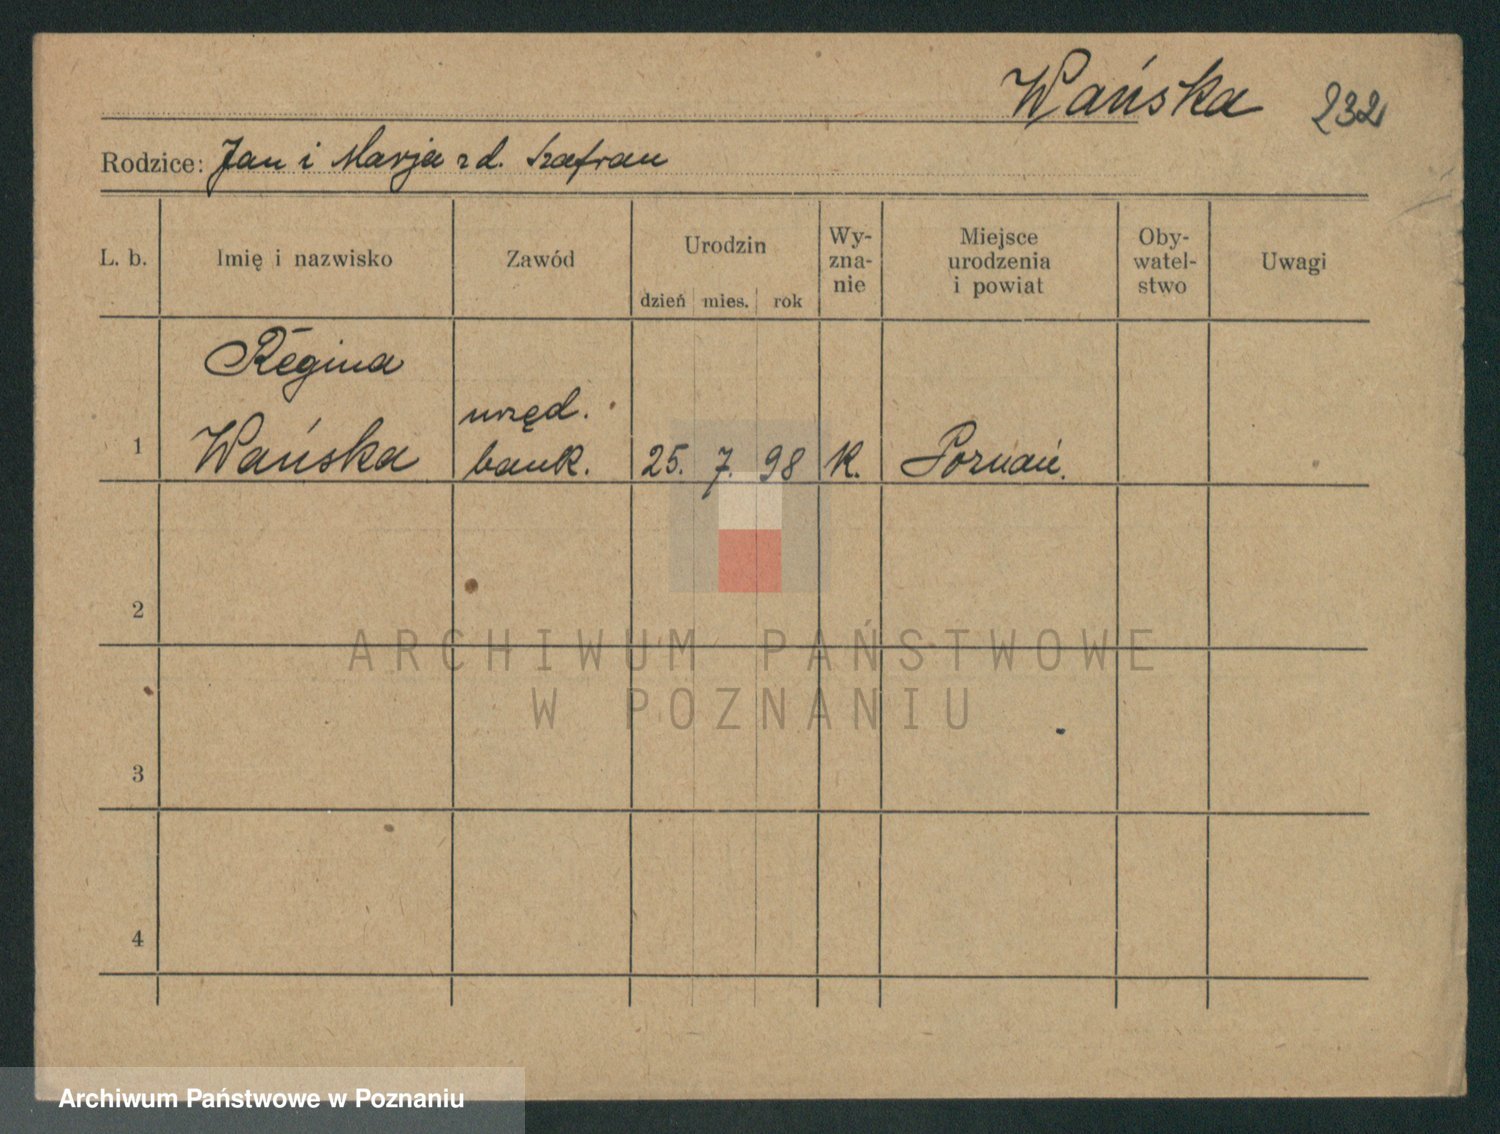 Wańska 232
Rodzice: Jan i Marja z d. Szafran
L. b.
Imię i nazwisko
Zawód
Urodzin
dzień mies. rok
Wy-
zna-
nie
Miejsce
urodzenia
i powiat
Oby-
watel-
stwo
Uwagi
Regina
1 Wańska
urzęd.
bank.
25. 7. 98
K.
Poznań.
2
ARCHIWUM PAŃSTWOWE
W POZNANIU
3
4
Archiwum Państwowe w Poznaniu